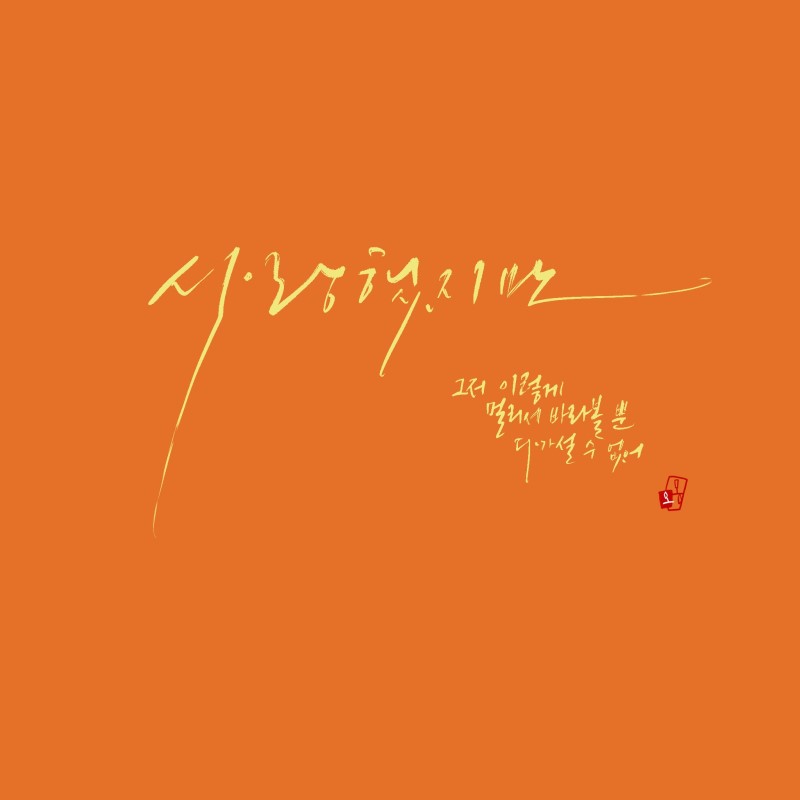 사랑했지만
그저 이렇게
멀리서 바라볼 뿐
다가설 수 없어